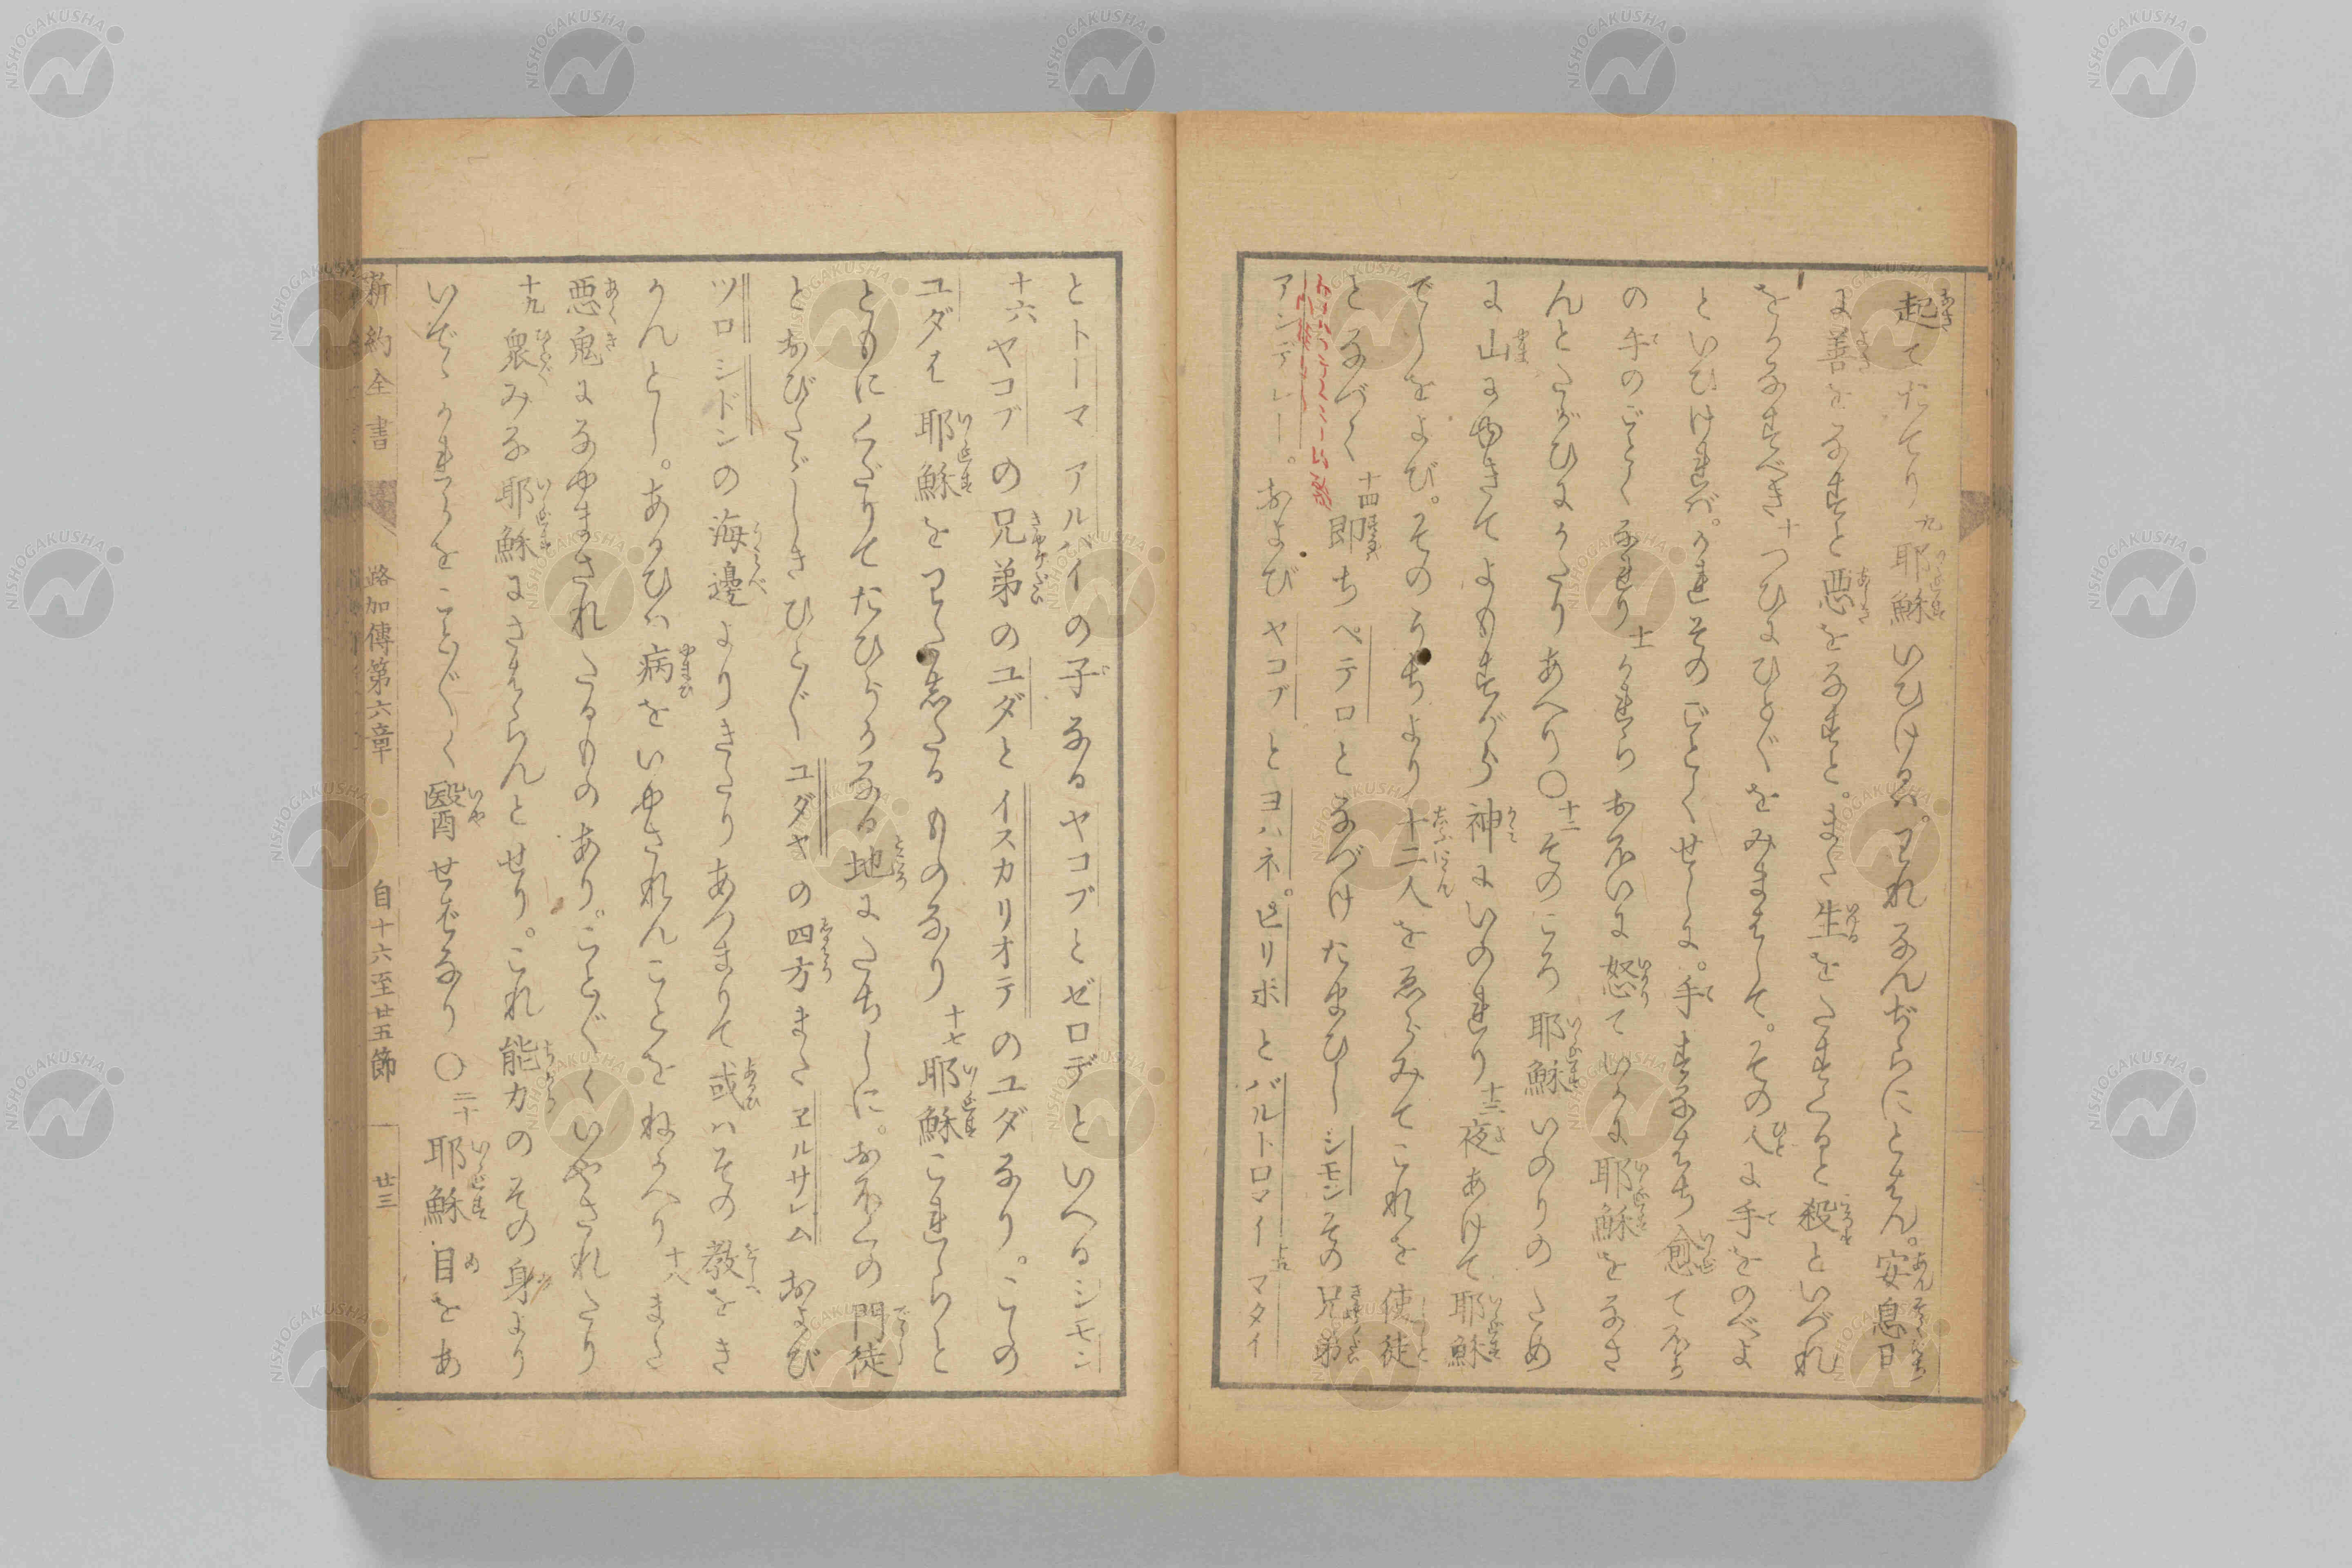 起てたてり九耶穌いひけるハ。われなんぢらにとはん。安息日
に善をなすと悪をなすと。また生をたすくると殺といづれ
をかなすべき十つひにひと〴〵をみまはして。その人に手をのべよ
といひけれバ。かれそのごとくせしに。手すなはち愈てほか
の手のごとくなれり十一かれらおほいに怒ていかに耶穌をなさ
んとたがひにかたりあへり〇十二そのころ耶穌いのりのため
に山にゆきてよもすがら神にいのれり十三夜あけて耶穌
でしをよび。そのうちより十二人をゑらみてこれを使徒
となづく十四即ちペテロとなづけたまひしシモンその兄弟
アンデレー。およびヤコブとヨハネ。ピリポとバルトロマイ十五マタイ
とトーマアルハイの子なるヤコブとゼロデといへるシモン
十六ヤコブの兄弟のユダとイスカリオテのユダなり。この
ユダは耶穌をわたしたるものなり十七耶穌これらと
ともにくだりてたひらかなる地にたちしに。おほくの門徒
とおびたゞしきひと〴〵ユダヤの四方またヱルサレムおよび
ツロシドンの海邊よりきたりあつまりて或ハその教をき
かんとし。あるひハ病をいやされんことをねがへり十八また
悪鬼になやまされたるものあり。こと〴〵くいやされたり
十九衆みな耶穌にさはらんとせり。これ能力のその身より
いでゝかれらをこと〴〵く醫せバなり〇二十耶穌目をあ
新約全書 路加傳第六章 自十六至廿五節 廿三